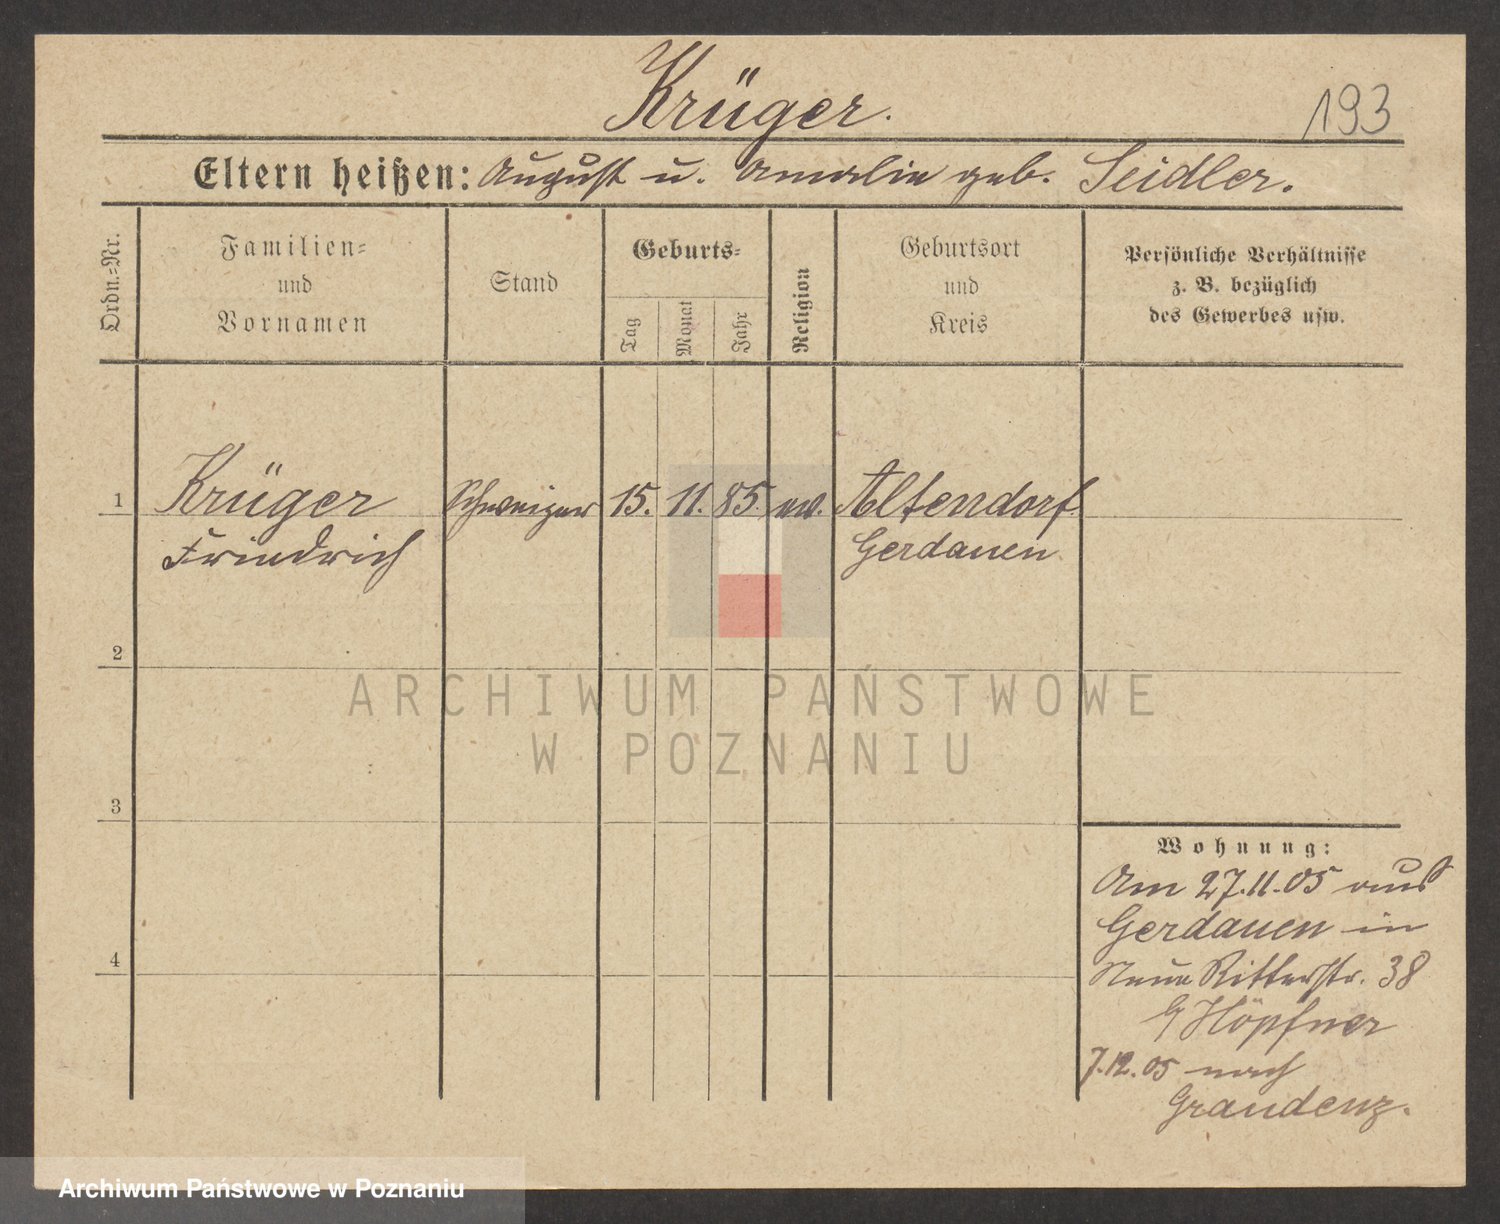 Krüger.
193
Eltern heißen: August u. Amalie geb. Seidler.
Ordn.=Nr.
Familien=
und
Vornamen
Stand
Geburts=
Tag
Monat
Jahr
Religion
Geburtsort
und
Kreis
Persönliche Verhältnisse
z. B. bezüglich
des Gewerbes usw.
1
Krüger
Friedrich
Schweizer
15.
11.
85.
ev.
Altendorf
Gerdauen
2
3
4
ARCHIWUM PAŃSTWOWE
W POZNANIU
Wohnung:
Am 27.11.05 aus
Gerdauen in
Neue Ritterstr. 38
Höpfner
7.12.05 nach
Graudenz.
Archiwum Państwowe w Poznaniu